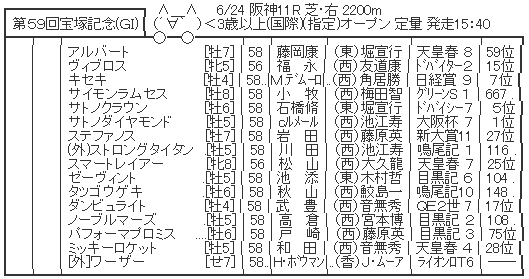 第59回宝塚記念(GI) 6/24 阪神11R 芝・右 2200m
<3歳以上(国際)(指定)オープン 定量 発走15:40
アルバート [牡7] 58 藤岡康 (東)堀宣行 天皇春 8 59位
ヴィブロス [牝5] 56 福永 (西)友道康 ドバイター2 15位
キセキ [牡4] 58.. M.デムーロ (西)角居勝 日経賞 9 7位
サイモンラムセス [牡8] 58 小牧 (西)梅田智 グリーンS 1 667..
サトノクラウン [牡6] 58 石橋脩 (東)堀宣行 ドバイシー7 5位
サトノダイヤモンド [牡5] 58 cルメール (西)池江寿 大阪杯 7 1位
ステファノス [牡7] 58 岩田 (西)藤原英 新大賞11 27位
(外)ストロングタイタン [牡5] 58 川田 (西)池江寿 鳴尾記 1 116..
スマートレイアー [牝8] 56 松山 (西)大久龍 天皇春 7 25位
ゼーヴィント [牡5] 58 池添 (東)木村哲 目黒記 6 104..
タツゴウゲキ [牡6] 58 秋山 (西)鮫島一 鳴尾記10 148..
ダンビュライト [牡4] 58 武豊 (西)音無秀 QE2世 7 17位
ノーブルマーズ [牡5] 58 高倉 (西)宮本博 目黒記 2 108..
パフォーマプロミス ...[牡6] 58 戸崎 (西)藤原英 目黒記 3 75位
ミッキーロケット [牡5] 58 和田 (西)音無秀 天皇春 4 28位
[外]ワーザー [せ7] 58.. H・ボウマン (香)J・ムーア ライオンロT6 ――